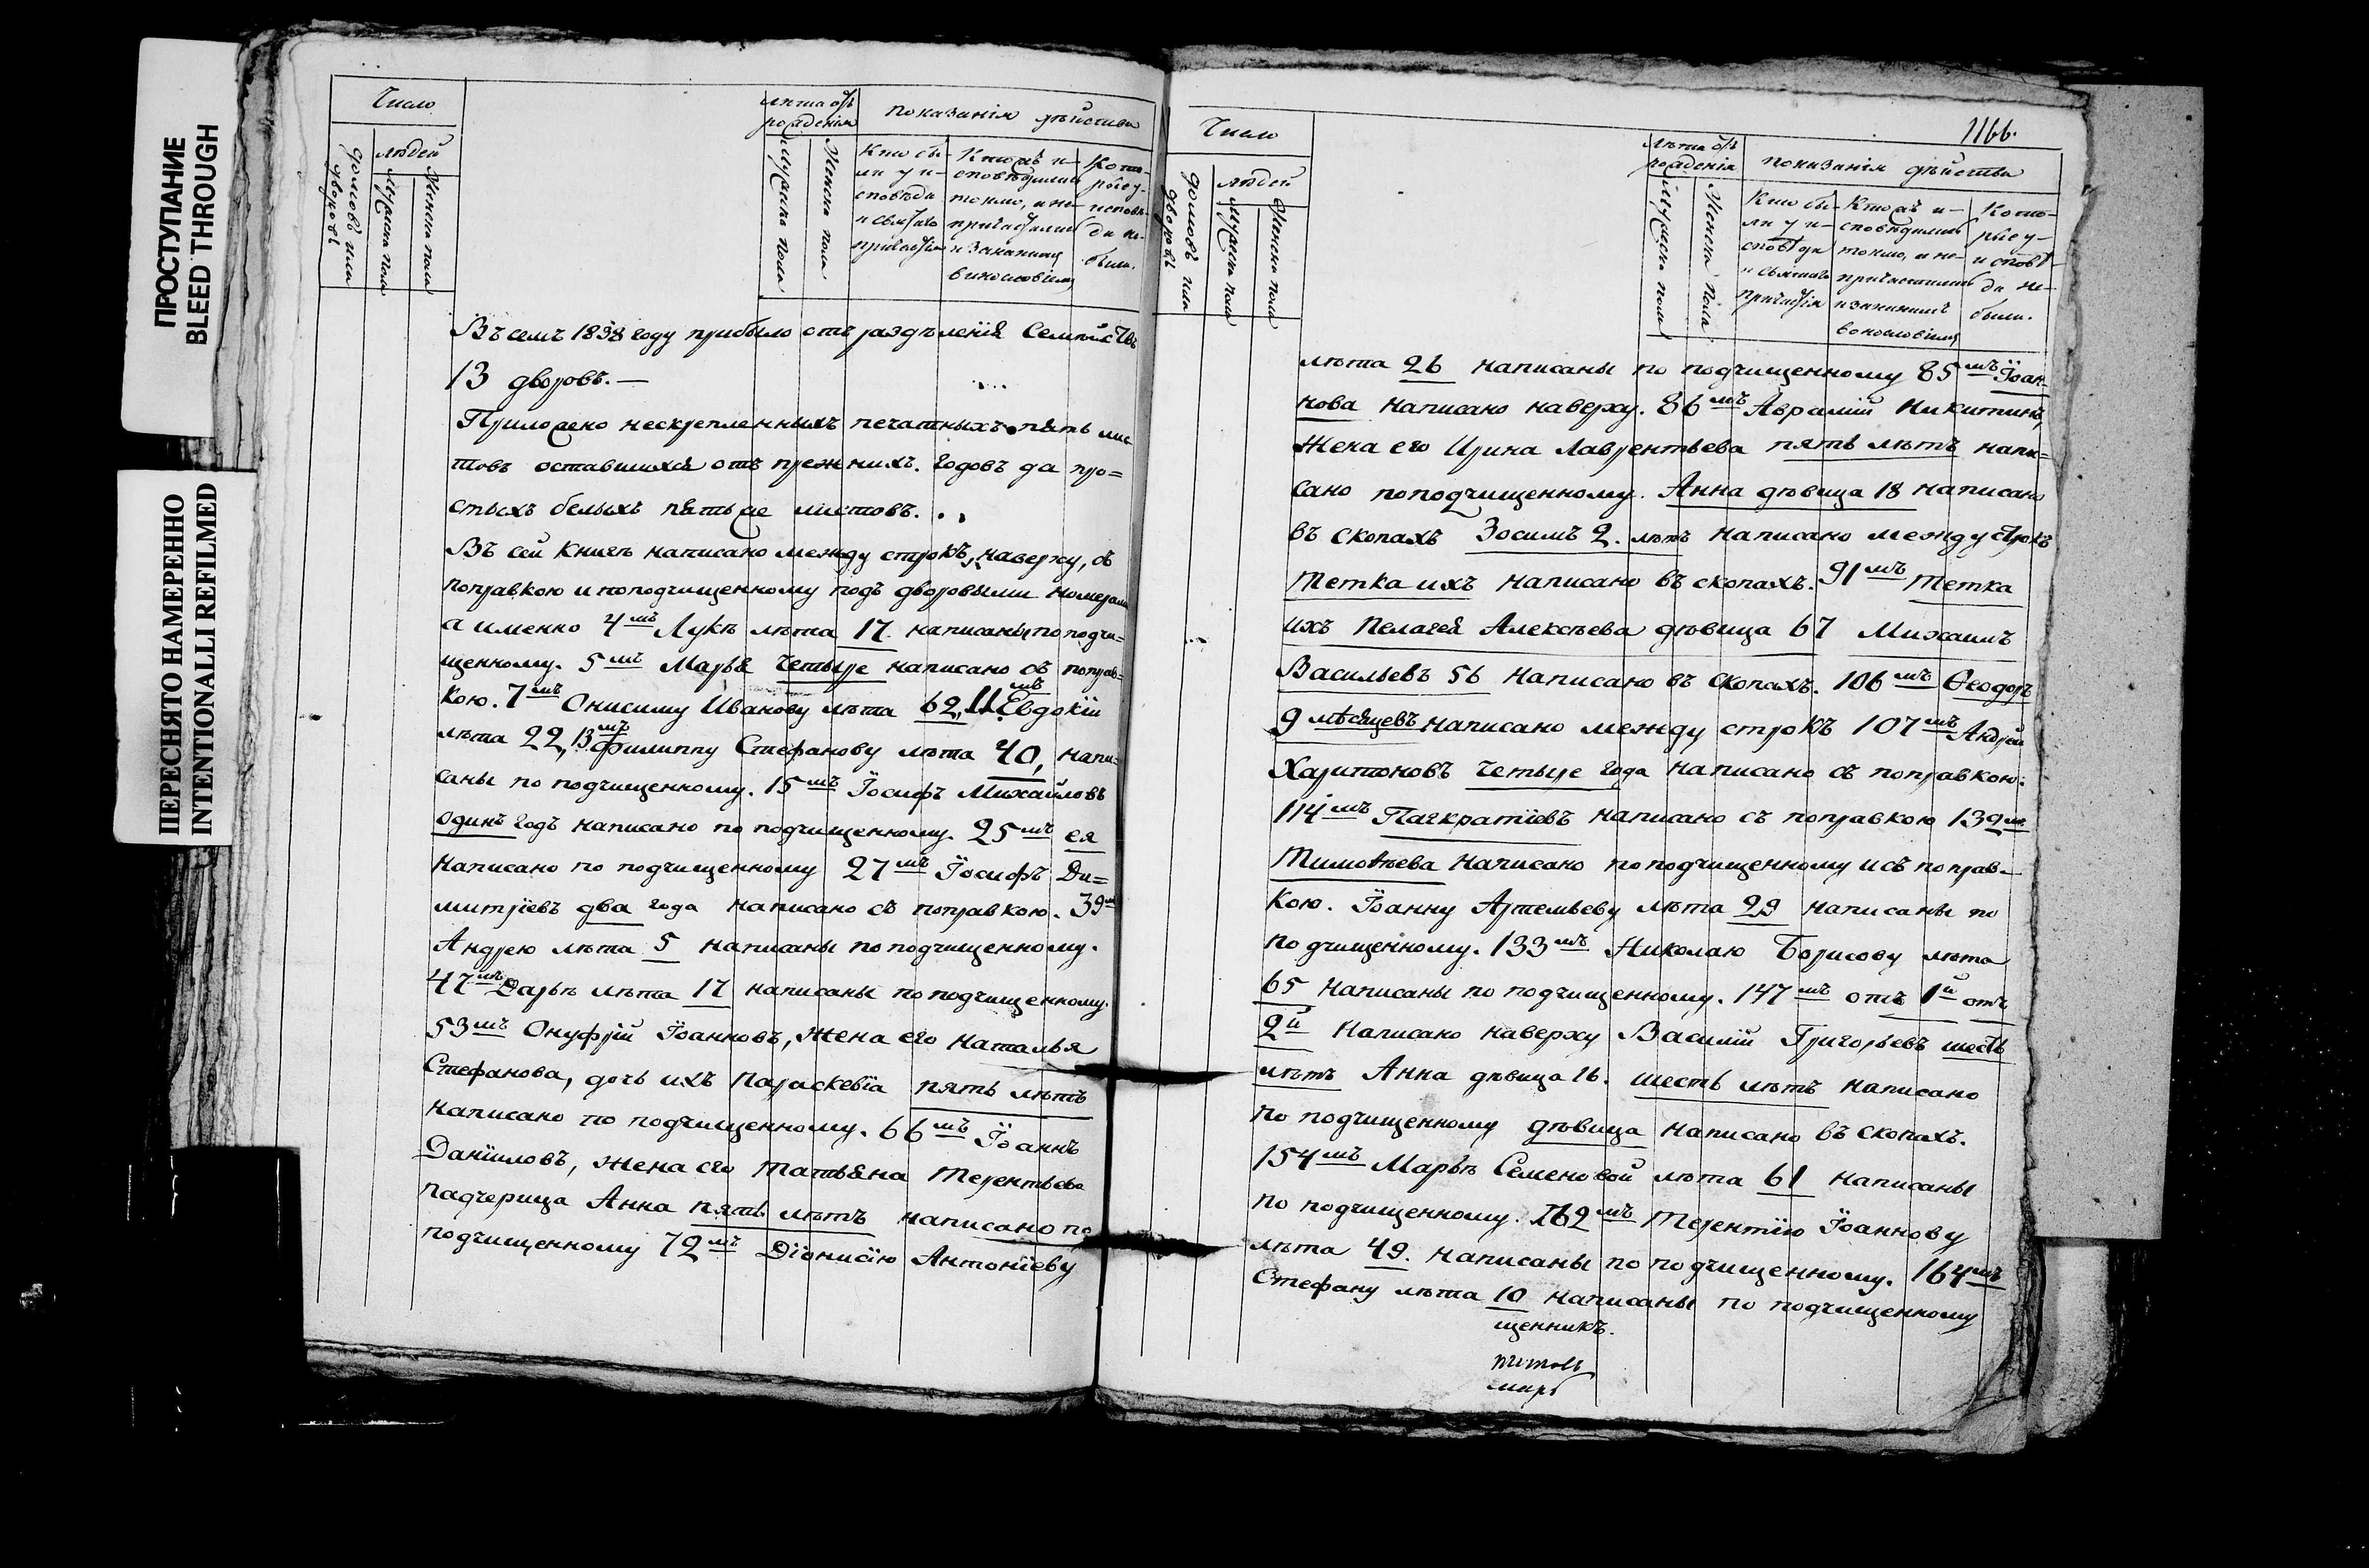 ПРОСТУПАНИЕ
BLEED THROUGH
ПЕРЕСНЯТО НАМЕРЕННО
INTENTIONALLI REFILMED
Число
домовъ или дворовъ
людей
Мужеска пола
Женска пола
лѣта отъ рожденія
Мужеска пола
Женска пола
показанія дѣйства
Кто бы-
ли у и-
сповѣди
и святаго
причастія
Кто жъ и-
сповѣдались
токмо, а не
причастились
и за какимъ
винословіемъ
Кото-
рые у
исповѣ-
ди не
были.
Въ семъ 1838 году прибыло отъ раздѣленія Семействъ
13 дворовъ. —
Приложено нескрепленныхъ печатныхъ пять лис
товъ оставшихся отъ прежнихъ годовъ да про=
стыхъ белыхъ пять же листовъ.
Въ сей Книгѣ написано между строкъ, наверху, съ
поправкою и поподчищенному подъ дворовыми номерами
а именно 4мъ Лукѣ лѣта 17 написаны по подчи=
щенному. 5мъ Марья четыре написано съ поправ=
кою. 7мъ Онисиму Иванову лѣта 62, 11мъ Евдокіи
лѣта 22, 13мъ Филиппу Стефанову лѣта 40, напи-
саны по подчищенному. 15мъ Іосифъ Михайловъ
одинъ годъ написано по подчищенному. 25мъ ея
написано по подчищенному 27мъ Іосифъ Ди=
митріевъ два года написано съ поправкою. 39мъ
Андрею лѣта 5 написаны по подчищенному.
47мъ Дарьѣ лѣта 17 написаны по подчищенному.
53мъ Онуфрій Іоанновъ, жена его Наталья
Стефанова, дочь ихъ Параскевіа пять лѣтъ
написано по подчищенному. 66мъ Іоаннъ
Даніиловъ, жена его Татьяна Терентьева
падчерица Анна пять лѣтъ написано по
подчищенному 72мъ Діонисію Антоніеву
1166.
Число
домовъ или дворовъ
людей
Мужеска пола
Женска пола
Лѣта отъ рожденія
Мужеска пола
Женска пола
показанія дѣйства
Кто бы-
ли у и-
сповѣди
и святаго
причастія
Кто жъ и-
сповѣдались
токмо, а не-
причастились
и за какимъ
винословіемъ
Кото-
рые у-
исповѣ-
ди не-
были.
лѣта 26 написаны по подчищенному 85мъ Іоан-
нова написано наверху. 86мъ Аврамій Никитинъ,
жена его Ирина Лаврентьева пять лѣтъ напи=
сано поподчищенному. Анна дѣвица 18 написано
въ скопахъ Зосимъ 2. лѣтъ написано между строкъ
тетка ихъ написано въ скопахъ. 91мъ тетка
ихъ Пелагея Алексѣева дѣвица 67 Михаилъ
Васильевъ 56 написано въ скопахъ. 106мъ Ѳеодоръ
9 мѣсяцевъ написано между строкъ 107мъ Андрей
Харитоновъ четыре года написано съ поправкою.
114мъ Пагкратіевъ написано съ поправкою 139мъ
Тимоѳѣева написано по подчищенному и съ поправ-
кою. Іоанну Артемьеву лѣта 29 написаны по
подчищенному. 133мъ Николаю Борисову лѣта
65 написаны по подчищенному. 147мъ отъ 1й отъ
2й написано наверху Василій Григорьевъ шесть
лѣтъ Анна дѣвица 16. шесть лѣтъ написано
по подчищенному дѣвица написано въ скопахъ.
154мъ Марьѣ Семеновой лѣта 61 написаны
по подчищенному. 162мъ Терентію Іоаннову
лѣта 49. написаны по подчищенному. 164мъ
Стефану лѣта 10 написаны по подчищенному
щенникъ.